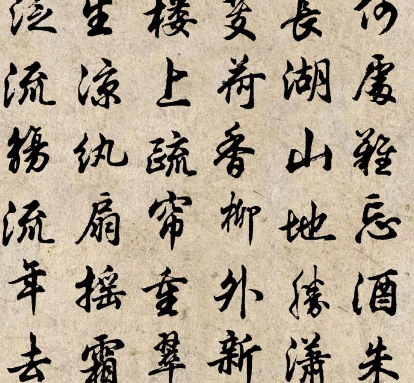 何處難忘酒朱
長湖山地勝瀟
芰荷香柳外新
樓上疏帘垂翠
生涼紈扇摇霜
泛流觴流年去